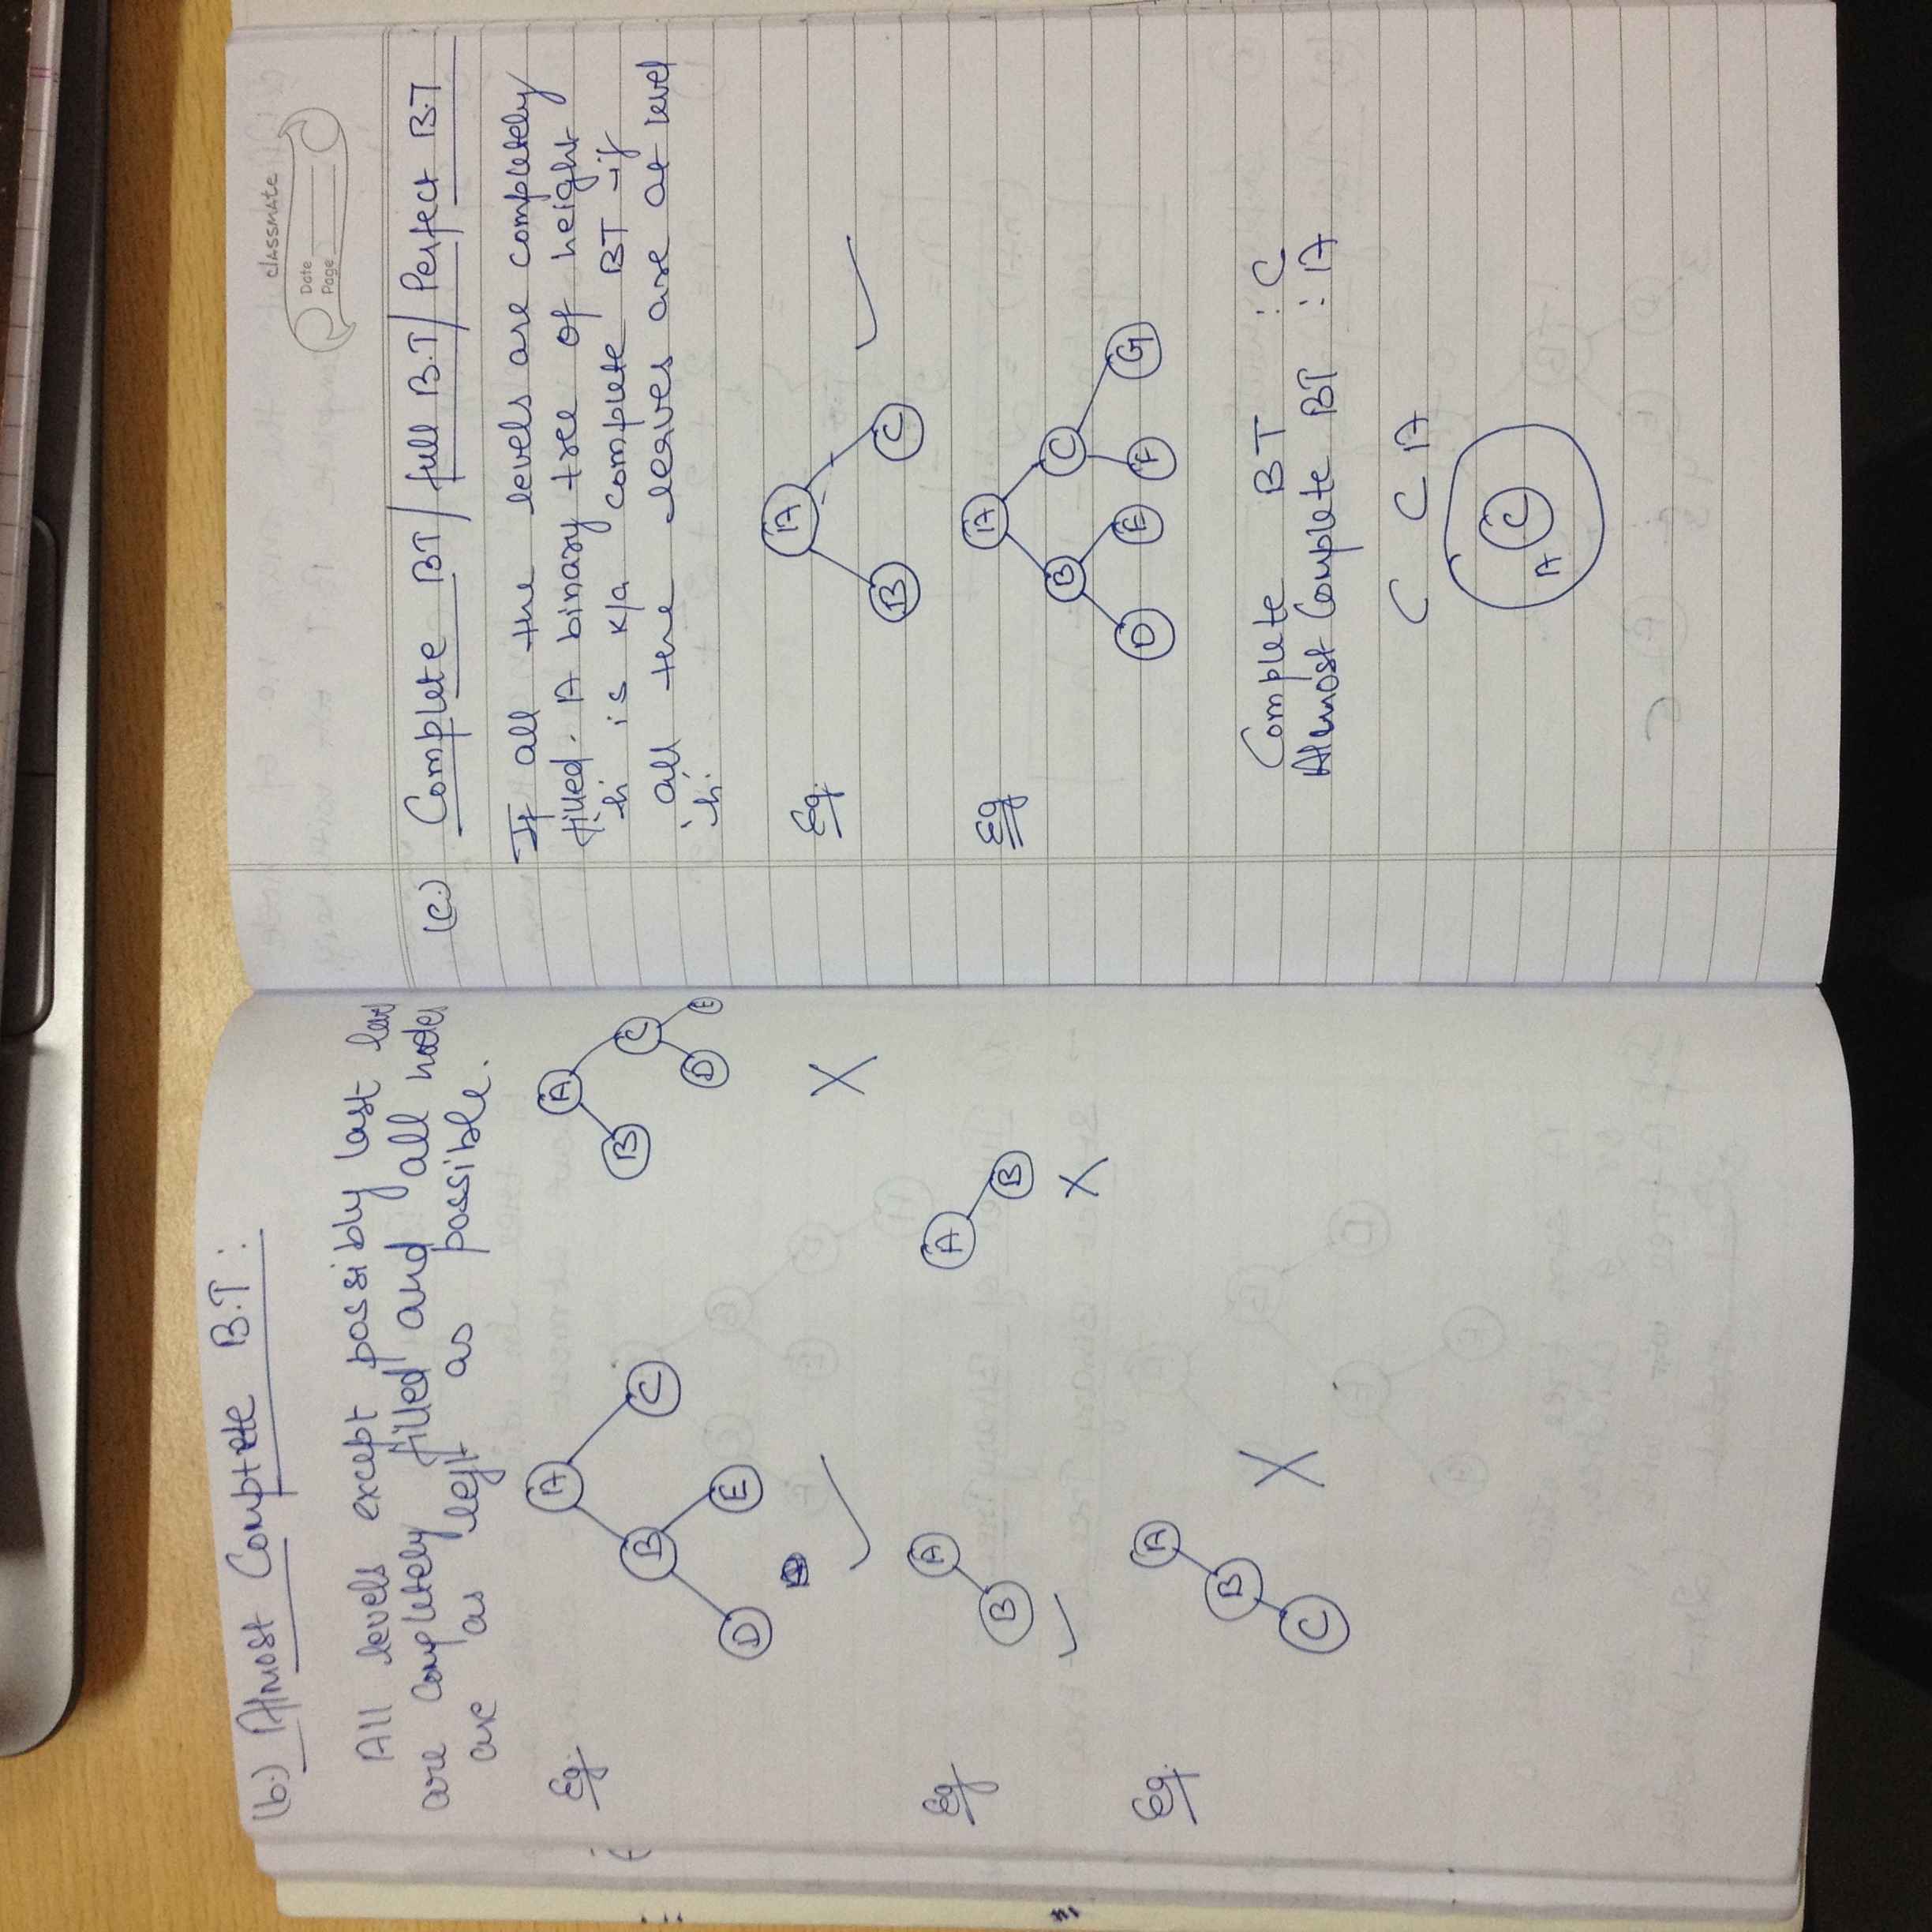 (b.) Almost Complete B.T :
All levels except possibly last
are completely filled and all nodes
are as left as possible.
Eg.
A
B
C
D
E
A
B
C
D
E
Eg
B
A
A
B
Eg.
C
B
A
classmate
Date
Page
(c.) Complete BT / full B.T / Perfect B.T
If all the levels are completely
filled. A binary tree of height
'h' is k/a complete BT if
all the leaves are at level
'h'.
Eg.
A
B
C
Eg
A
B
C
D
E
F
G
Complete BT : C
Almost Complete BT : A
C C A
A C